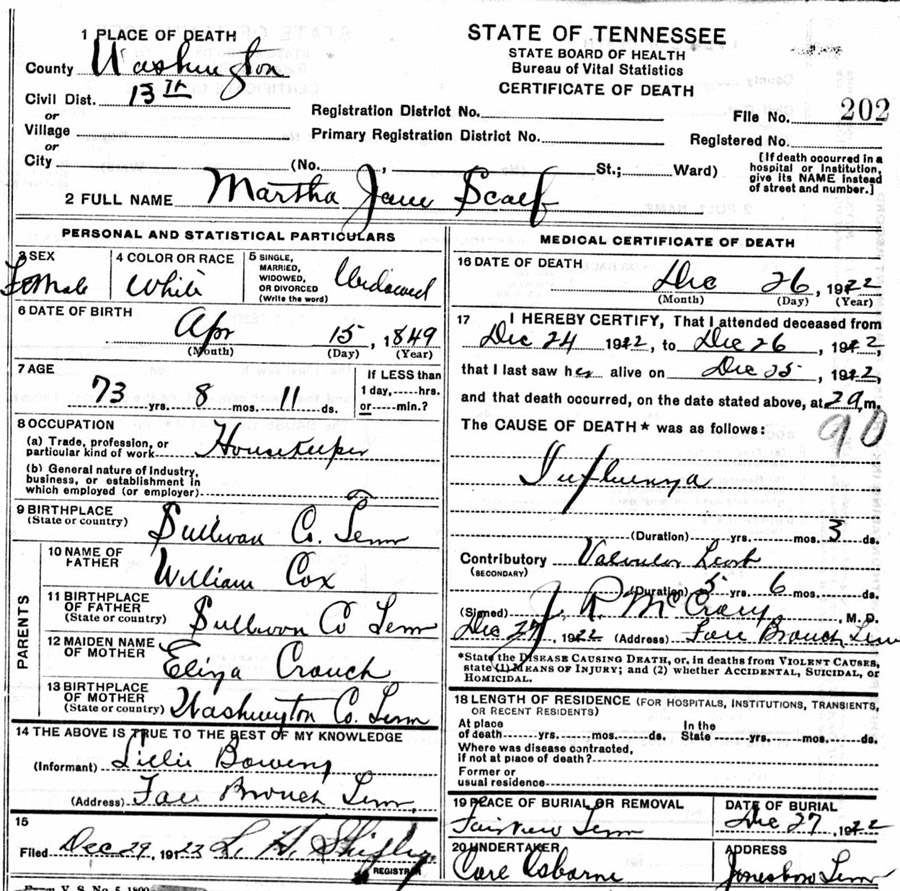 STATE OF TENNESSEE
STATE BOARD OF HEALTH
Bureau of Vital Statistics
CERTIFICATE OF DEATH
1 PLACE OF DEATH
County Washington
Civil Dist. 13th
or
Village
or
City (No. , St.; Ward)
Registration District No. File No. 202
Primary Registration District No. Registered No.
[If death occurred in a
hospital or institution,
give its NAME instead
of street and number.]
2 FULL NAME Martha Jane Scalf
PERSONAL AND STATISTICAL PARTICULARS
3 SEX Female
4 COLOR OR RACE White
5 SINGLE,
MARRIED,
WIDOWED,
OR DIVORCED
(Write the word) Widowed
6 DATE OF BIRTH
Apr 15, 1849
(Month) (Day) (Year)
7 AGE
73 yrs. 8 mos. 11 ds.
If LESS than
1 day,----hrs.
or----min.?
8 OCCUPATION
(a) Trade, profession, or
particular kind of work Housekeeper
(b) General nature of industry,
business, or establishment in
which employed (or employer)
9 BIRTHPLACE
(State or country) Sullivan Co. Tenn
PARENTS
10 NAME OF
FATHER William Cox
11 BIRTHPLACE
OF FATHER
(State or country) Sullivan Co Tenn
12 MAIDEN NAME
OF MOTHER Eliza Crouch
13 BIRTHPLACE
OF MOTHER
(State or country) Washington Co. Tenn
14 THE ABOVE IS TRUE TO THE BEST OF MY KNOWLEDGE
(Informant) Lillie Bowery
(Address) Fall Branch Tenn.
15
Filed Dec 29, 1922 L. H. Shipley
REGISTRAR
Form V. S. No. 5, 1800
MEDICAL CERTIFICATE OF DEATH
16 DATE OF DEATH
Dec 26, 1922
(Month) (Day) (Year)
17 I HEREBY CERTIFY, That I attended deceased from
Dec 24 1922, to Dec 26, 1922,
that I last saw her alive on Dec 25, 1922,
and that death occurred, on the date stated above, at 2 a.m.
The CAUSE OF DEATH* was as follows:
90
Influenza
(Duration) yrs. mos. 3 ds.
Contributory Valvular
(SECONDARY)
(Duration) 5 yrs. 6 mos. ds.
(Signed) J. R. McCrary, M.D.
Dec 27, 1922 (Address) Fall Branch Tenn
*State the DISEASE CAUSING DEATH, or, in deaths from VIOLENT CAUSES,
state (1) MEANS OF INJURY; and (2) whether ACCIDENTAL, SUICIDAL, or
HOMICIDAL.
18 LENGTH OF RESIDENCE (FOR HOSPITALS, INSTITUTIONS, TRANSIENTS,
OR RECENT RESIDENTS)
At place In the
of death yrs. mos. ds. State yrs. mos. ds.
Where was disease contracted,
if not at place of death?
Former or
usual residence
19 PLACE OF BURIAL OR REMOVAL
Fairview Tenn
DATE OF BURIAL
Dec 27, 1922
20 UNDERTAKER
Osborne
ADDRESS
Jonesboro Tenn